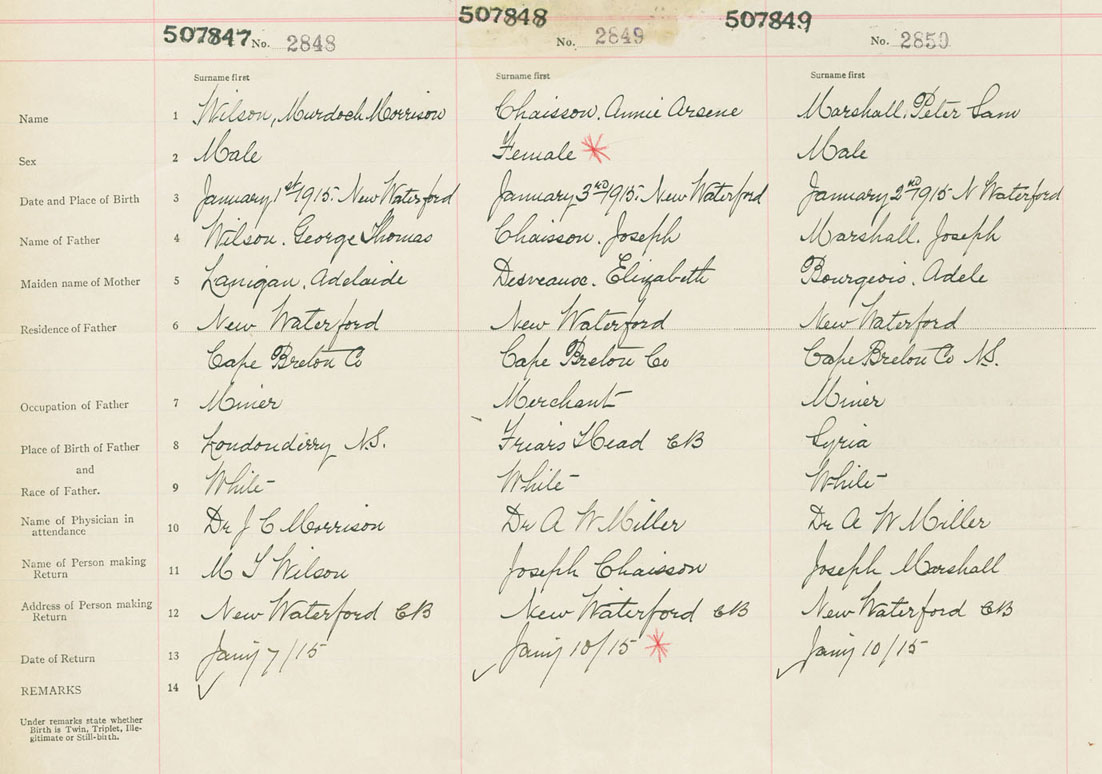 507847 No. 2848 507848 No. 2849 507849 No. 2850
Surname first Surname first Surname first
Name 1 Wilson, Murdoch Morrison Chaisson, Annie Arsene Marshall, Peter Sam
Sex 2 Male Female Male
Date and Place of Birth 3 January 1st 1915. New Waterford January 3rd 1915. New Waterford January 2nd 1915 N Waterford
Name of Father 4 Wilson. George Thomas Chaisson. Joseph Marshall. Joseph
Maiden name of Mother 5 Lanigan, Adelaide Desveaux. Elizabeth Bourgeois. Adele
Residence of Father 6 New Waterford New Waterford New Waterford
Cape Breton Co Cape Breton Co Cape Breton Co N.S.
Occupation of Father 7 Miner Merchant Miner
Place of Birth of Father 8 Londonderry N.S. Friars Head CB Syria
and
Race of Father. 9 White White White
Name of Physician in
attendance 10 Dr J C Morrison Dr A W Miller Dr A W Miller
Name of Person making
Return 11 M T Wilson Joseph Chaisson Joseph Marshall
Address of Person making
Return 12 New Waterford CB New Waterford CB New Waterford CB
Date of Return 13 Jany 7/15 Jany 10/15 Jany 10/15
REMARKS 14
Under remarks state whether
Birth is Twin, Triplet, Ille-
gitimate or Still-birth.